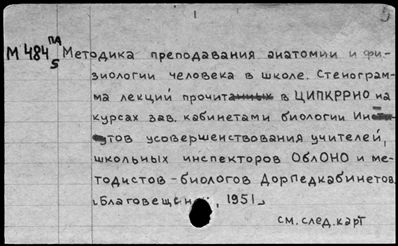 5
М 484 ПД
5
Методика преподавания анатомии и фи-
зиологии человека в школе. Стенограм-
ма лекций прочитанных в ЦИПКРРНО на
курсах зав. кабинетами биологии Инсти-
тутов усовершенствования учителей,
школьных инспекторов ОблОНО и ме-
тодистов-биологов Дорпедкабинетов.
[Благовещенск], 1951.
см. след. карт